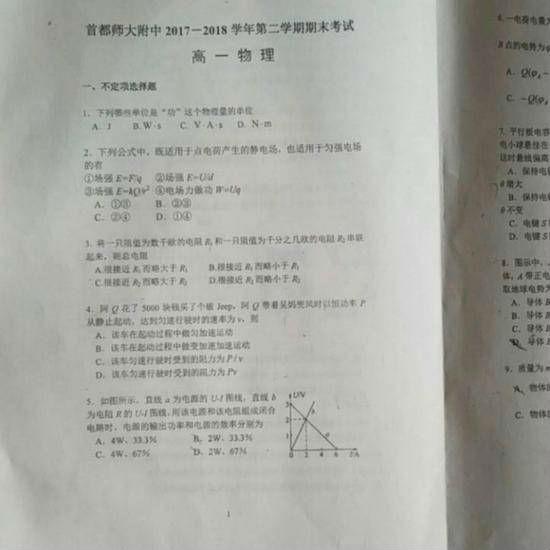 首都师大附中 2017－2018 学年第二学期期末考试
高 一 物 理
一、不定项选择题
1. 下列哪些单位是“功”这个物理量的单位
A. J B. W·s C. V·A·s D. N·m
2. 下列公式中，既适用于点电荷产生的静电场，也适用于匀强电场
的有
①场强 E=F/q ②场强 E=U/d
③场强 E=kQ/r² ④电场力做功 W=Uq
A. ①③ B. ②③
C. ②④ D. ①④
3. 将一只阻值为数千欧的电阻 R₁ 和一只阻值为千分之几欧的电阻 R₂ 串联
起来，则总电阻
A.很接近 R₁ 而略大于 R₁ B.很接近 R₁ 而略小于 R₁
C.很接近 R₂ 而略大于 R₂ D.很接近 R₂ 而略小于 R₂
4. 阿 Q 花了 5000 块钱买了个破 Jeep，阿 Q 带着吴妈兜风时以恒功率 P
从静止起动，达到匀速行驶时的速率为 v，则
A. 该车在起动过程中做匀加速运动
B. 该车在起动过程中做变加速加速运动
C. 该车匀速行驶时受到的阻力为 P / v
D. 该车匀速行驶时受到的阻力为 Pv
5. 如图所示，直线 a 为电源的 U-I 图线，直线 b
为电阻 R 的 U-I 图线，用该电源和该电阻组成闭合
电路时，电源的输出功率和电源的效率分别为
A. 4W、33.3% B. 2W、33.3%
C. 4W、67% D. 2W、67%
U/V
3
2
1
0 2 4 6 I/A
b
a
1
6. 一电荷电量为
B 点的电势为φ
A. Q(φA-
C. -Q(φA
7. 平行板电容
电小球悬挂在
这时悬线偏离
A. 保持电
θ增大
B. 保持电
θ不变
C. 电键 S
D. 电键 S
8. 图示中，
体，A 带正电
取地球电势为
A. 导体 B
B. 导体
C. 导体 B
D. 导体
9. 质量为 m
A. 物体
C. 物体